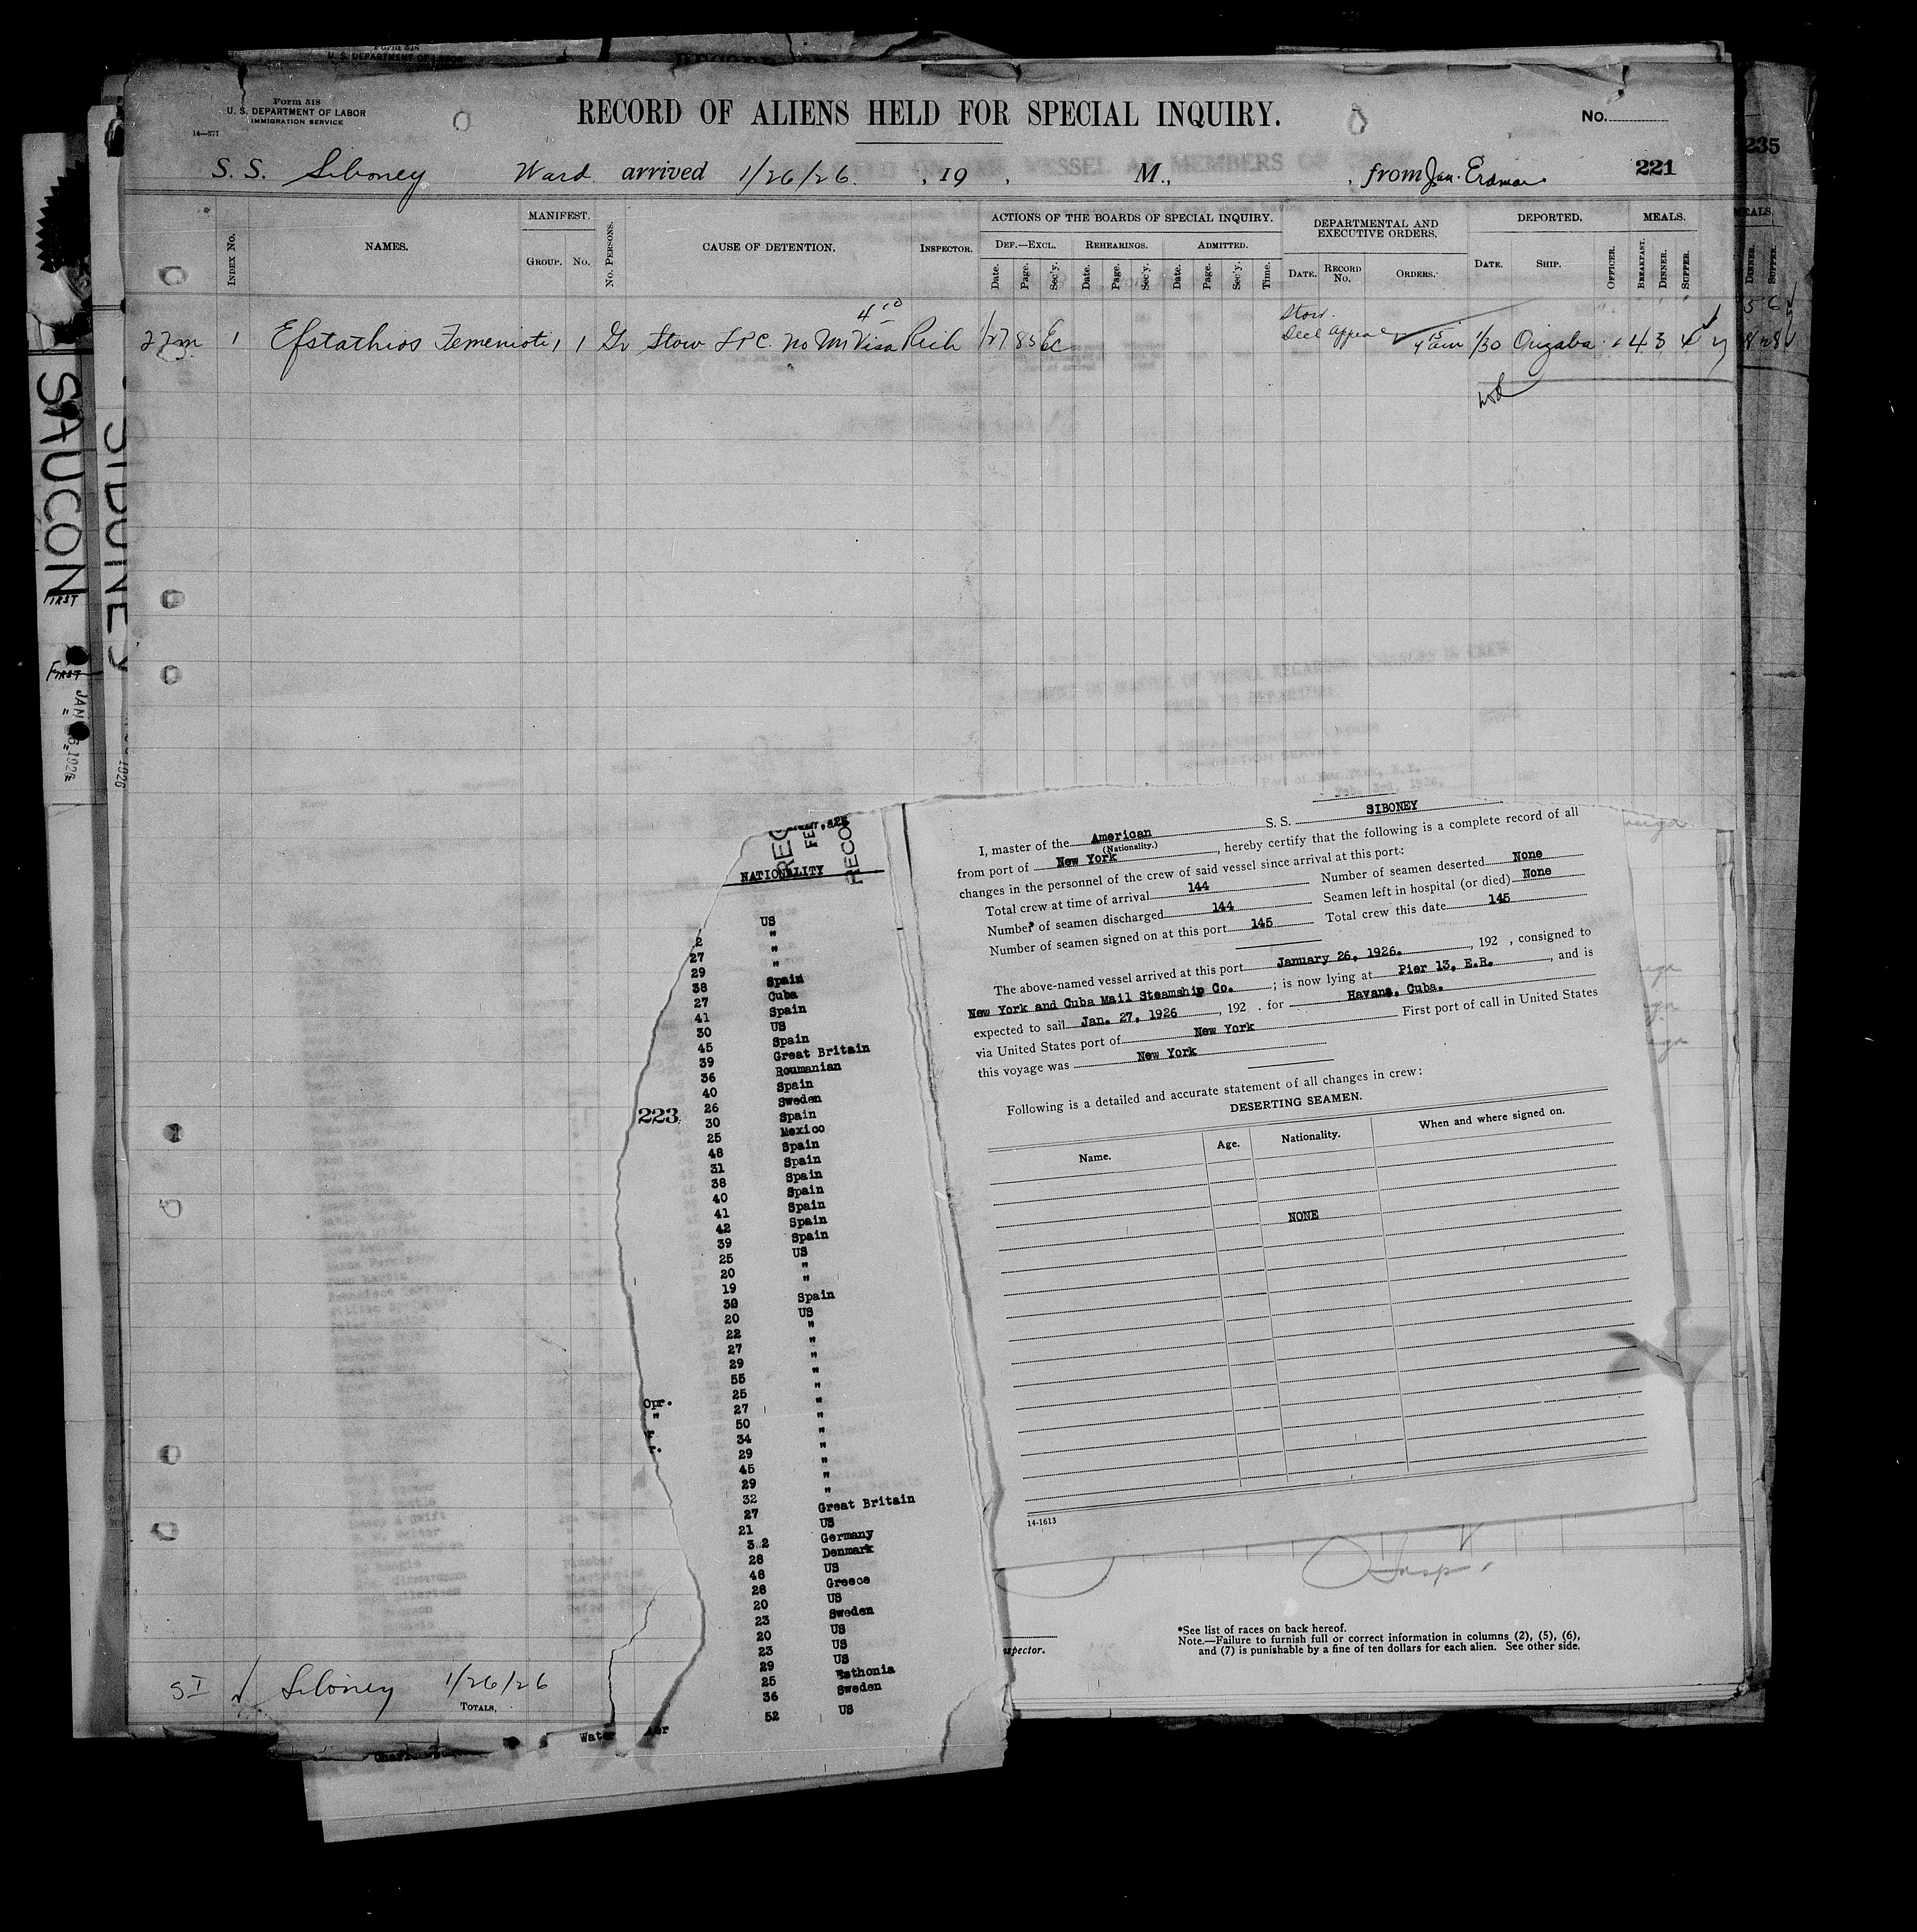 Form 518
U. S. DEPARTMENT OF LABOR
IMMIGRATION SERVICE
14—377
RECORD OF ALIENS HELD FOR SPECIAL INQUIRY.
No.
235
221
S. S. Siboney Ward arrived 1/26/26. , 19 , M., , from
INDEX No.
NAMES.
MANIFEST.
GROUP. No.
No. PERSONS.
CAUSE OF DETENTION.
INSPECTOR.
ACTIONS OF THE BOARDS OF SPECIAL INQUIRY.
DEF.—EXCL. REHEARINGS. ADMITTED.
Date. Page. Sec'y. Date. Page. Sec'y. Date. Page. Sec'y. Time.
DEPARTMENTAL AND
EXECUTIVE ORDERS.
DATE. RECORD No. ORDERS.
DEPORTED.
DATE. SHIP. OFFICER.
MEALS.
BREAKFAST. DINNER. SUPPER.
MEALS.
DINNER. SUPPER.
22m 1 Efstathios Femenioti 1 1 Gr Stow LPC. No Visa Rich 1/27 85 Ec
Stow.
Decl Appeal 1/30 Orizaba 4 3 4
SAUCON
SIBONEY
FIRST
FIRST
NATIONALITY
US
2 "
27 "
29 "
38 Spain
27 Cuba
41 Spain
30 US
45 Spain
39 Great Britain
36 Roumanian
40 Spain
26 Sweden
30 Spain
25 Mexico
48 Spain
31 Spain
38 Spain
40 Spain
41 Spain
42 Spain
39 Spain
25 US
20 "
19 "
30 Spain
20 US
22 "
27 "
29 "
55 "
25 "
27 "
50 "
34 "
29 "
45 "
29 "
32 "
27 Great Britain
21 US
32 Germany
28 Denmark
48 US
28 Greece
20 US
23 Sweden
20 US
23 US
29 US
25 Esthonia
36 Sweden
52 US
223
Opr.
"
I, master of the American S. S. SIBONEY
(Nationality.)
from port of New York , hereby certify that the following is a complete record of all
changes in the personnel of the crew of said vessel since arrival at this port:
Total crew at time of arrival 144 Number of seamen deserted None
Number of seamen discharged 144 Seamen left in hospital (or died) None
Number of seamen signed on at this port 145 Total crew this date 145
The above-named vessel arrived at this port January 26, 1926. , 192 , consigned to
New York and Cuba Mail Steamship Co. ; is now lying at Pier 13, E.R. , and is
expected to sail Jan. 27, 1926 , 192 . for Havana, Cuba.
via United States port of New York First port of call in United States
this voyage was New York
Following is a detailed and accurate statement of all changes in crew:
DESERTING SEAMEN.
Name. Age. Nationality. When and where signed on.
NONE
14-1613
Hosp.
*See list of races on back hereof.
Note.—Failure to furnish full or correct information in columns (2), (5), (6),
and (7) is punishable by a fine of ten dollars for each alien. See other side.
SI Siboney 1/26/26
TOTALS.
Water